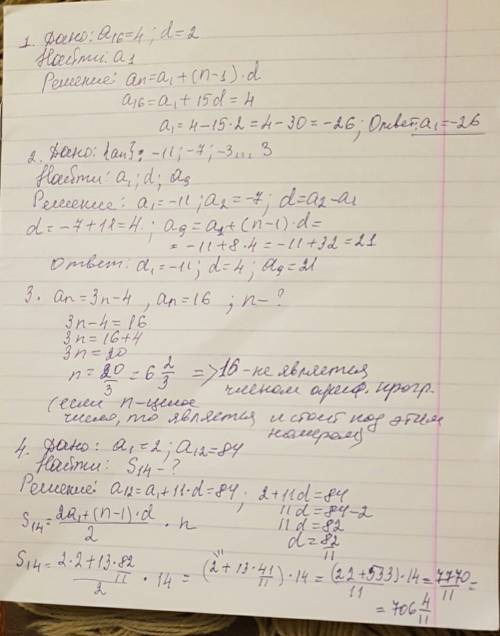 1. Дано: a16=4; d=2
Найти: a1
Решение: an=a1+(n-1)·d
a16=a1+15d=4
a1=4-15·2=4-30=-26; Ответ: a1=-26
2. Дано: {an}: -11; -7; -3... 3
Найти: a1; d; a9
Решение: a1=-11; a2=-7; d=a2-a1
d=-7+11=4; a9=a1+(n-1)·d=
=-11+8·4=-11+32=21
Ответ: a1=-11; d=4; a9=21
3. an=3n-4, an=16; n-?
3n-4=16
3n=16+4
3n=20
n=20/3=6 2/3 => 16-не является
членом ариф. прогр.
(если n-целое
число, то является и стоит под этим
номером)
4. Дано: a1=2; a12=84
Найти: S14-?
Решение: a12=a1+11·d=84; 2+11d=84
11d=84-2
11d=82
d=82/11
S14=(2a1+(n-1)·d)/2 · n
S14=(2·2+13·82/11)/2 · 14=(2+13·41/11)·14=(22+533)·14/11=7770/11=
=706 4/11